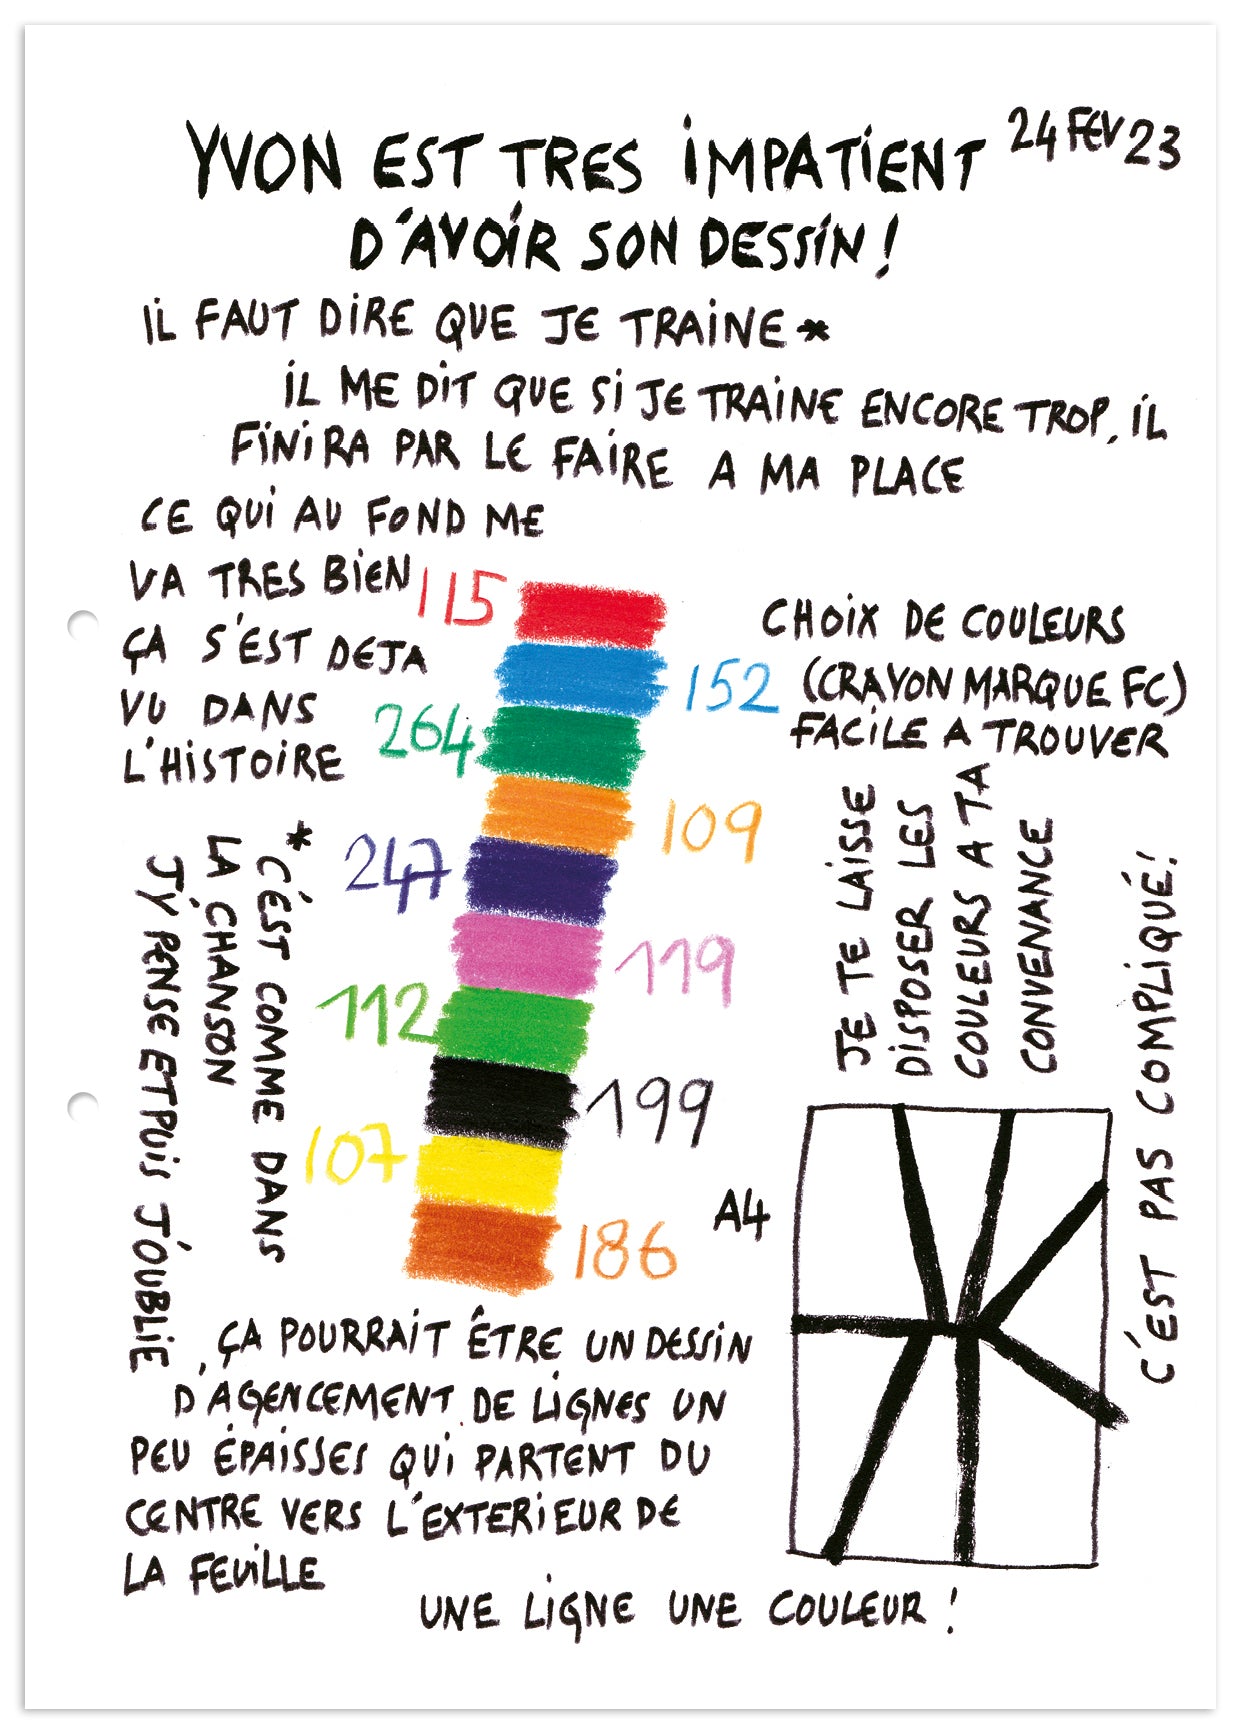 YVON EST TRES IMPATIENT
24 FEV 23
D'AVOIR SON DESSIN !
IL FAUT DIRE QUE JE TRAINE *
IL ME DIT QUE SI JE TRAINE ENCORE TROP, IL
FINIRA PAR LE FAIRE A MA PLACE
CE QUI AU FOND ME
VA TRES BIEN
ÇA S'EST DEJA
VU DANS
L'HISTOIRE
115
152
264
109
247
119
112
199
107
186
CHOIX DE COULEURS
(CRAYON MARQUE FC)
FACILE A TROUVER
JE TE LAISSE
DISPOSER LES
COULEURS A TA
CONVENANCE
C'EST PAS COMPLIQUÉ !
* C'EST COMME DANS
LA CHANSON
J'Y PENSE ET PUIS J'OUBLIE
A4
ÇA POURRAIT ÊTRE UN DESSIN
D'AGENCEMENT DE LIGNES UN
PEU ÉPAISSES QUI PARTENT DU
CENTRE VERS L'EXTERIEUR DE
LA FEUILLE
UNE LIGNE UNE COULEUR !